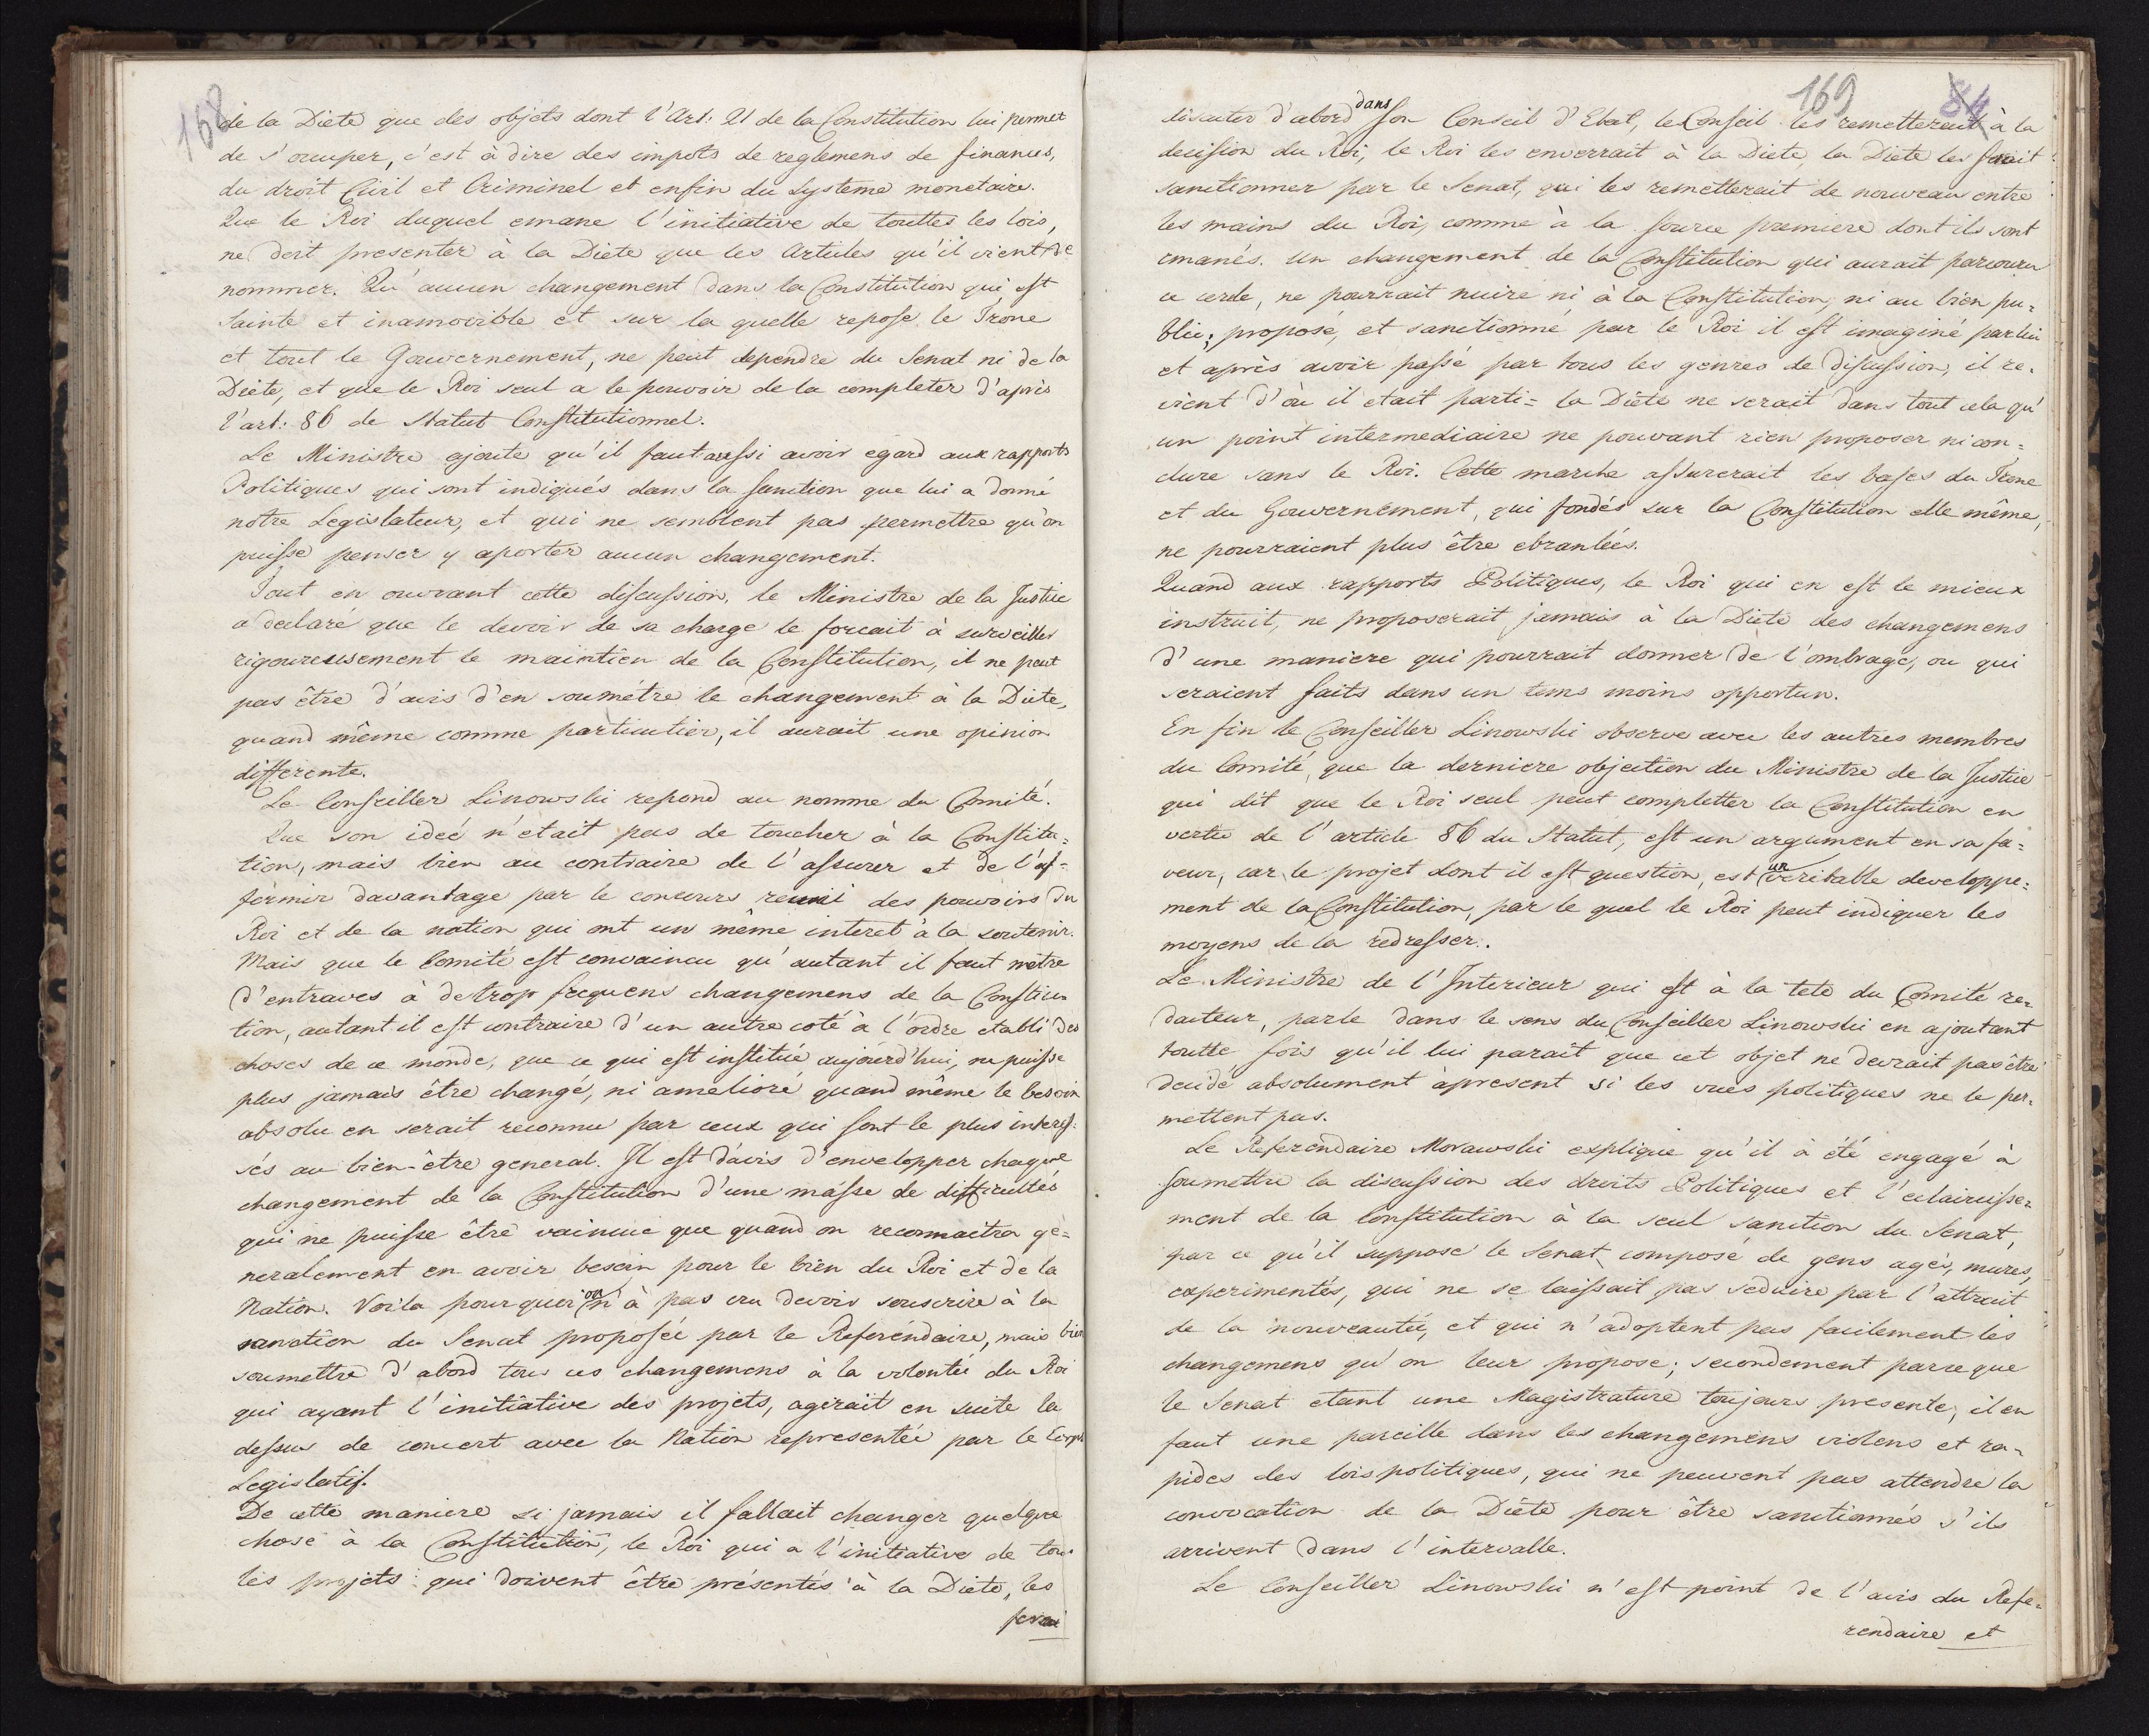 168
de la Diete que des objets dont l'Art: 21 de la Constitution lui permet
de s'occuper, c'est à dire des impots de reglemens de finances,
du droit Civil et Criminel et enfin du Systeme monetaire.
Que le Roi duquel emane l'initiative de touttes les lois,
ne doit presenter à la Diete que les Articles qu'il vient de
nommer. Qu'aucun changement dans la Constitution qui est
Sainte et inamovible et sur la quelle repose le Trone
et tout le Gouvernement, ne peut dependre du Senat ni de la
Diete, et que le Roi seul a le pouvoir de la completer d'après
l'art: 86 de Statut Constitutionnel.
Le Ministre ajoute qu'il faut aussi avoir egard aux rapports
Politiques qui sont indiqués dans la Sanction que lui a donné
notre Legislateur, et qui ne semblent pas permettre qu'on
puisse penser y aporter aucun changement.
Tout en ouvrant cette discussion, le Ministre de la Justice
a declaré que le devoir de sa charge le forcait à surveiller
rigoureusement le maintien de la Constitution, il ne peut
pas être d'avis d'en soumétre le changement à la Diete,
quand même comme particulier, il aurait une opinion
differente.
Le Conseiller Linowski repond au nomme du Comité.
Que son ideé n'etait pas de toucher à la Constitu=
tion, mais bien au contraire de l'assurer et de l'af=
fermir davantage par le concours reuni des pouvoirs du
Roi et de la nation qui ont un même interet à la soutenir.
Mais que le Comité est convaincu qu'autant il faut métre
d'entraves à de trop frequens changemens de la Constitu=
tion, autant il est contraire d'un autre coté à l'ordre etabli des
choses de ce monde, que ce qui est institué aujourd'hui, ne puisse
plus jamais être changé, ni amelioré quand même le besoin
absolu en serait reconnu par ceux qui sont le plus interes=
sés au bien-être general. Il est d'avis d'envelopper chaque
changement de la Constitution d'une masse de difficultés
qui ne puisse être vaincuë que quand on reconnaitra ge=
neralement en avoir besoin pour le bien du Roi et de la
Nation. Voila pourquoi on n'à pas cru devoir souscrire à la
sanction du Senat proposée par le Referendaire, mais bien
soumettre d'abord tous ces changemens à la volonté du Roi
qui ayant l'initiative des projets, agirait en suite la
dessus de concert avec la Nation representée par le Corps
Legislatif.
De cette maniere si jamais il fallait changer quelque
chose à la Constitution, le Roi qui a l'initiative de tous
les projets qui doivent être présentés à la Diete, les
ferai
169 84
discuter d'abord dans Son Conseil d'Etat, le Conseil les remetterait à la
decision du Roi, le Roi les enverrait à la Diete, la Diete les ferait
sanctionner par le Senat, qui les remetterait de nouveau entre
les mains du Roi, comme à la source premiere dont ils sont
emanés. Un changement de la Constitution qui aurait parcouru
ce cercle, ne pourrait nuire ni à la Constitution, ni au bien pu=
blic, proposé, et sanctionné par le Roi il est imaginé par lui
et après avoir passé par tous les genres de discussion, il re=
vient d'où il etait parti = la Diète ne serait dans tout cela qu'
un point intermediaire ne pouvant rien proposer ni con=
clure sans le Roi. Cette marche assurerait les bases du Trone
et du Gouvernement, qui fondés sur la Constitution elle même,
ne pourraient plus être ebranlées.
Quand aux rapports Politiques, le Roi qui en est le mieux
instruit, ne proposerait jamais à la Diete des changemens
d'une maniere qui pourrait donner de l'ombrage, ou qui
seraient faits dans un tems moins opportun.
En fin le Conseiller Linowski observe avec les autres membres
du Comité, que la derniere objection du Ministre de la Justice
qui dit que le Roi seul peut completter la Constitution en
vertu de l'article 86 du Statut, est un argument en sa fa=
veur, car le projet dont il est question, est un veritable developpe=
ment de la Constitution, par le quel le Roi peut indiquer les
moyens de la redresser.
Le Ministre de l'Interieur qui est à la tete du Comité re=
dacteur, parle dans le sens du Conseiller Linowski en ajoutant
toutte fois qu'il lui parait que cet objet ne devrait pas être
decidé absolument àpresent si les vues politiques ne le per=
mettent pas.
Le Referendaire Morawski explique qu'il à été engagé à
soumettre la discussion des droits Politiques et l'eclaircisse=
ment de la Constitution à la seul sanction du Senat,
par ce qu'il suppose le Senat, composé de gens agés, mures,
experimentés, qui ne se laissait pas seduire par l'attrait
de la nouveautée, et qui n'adoptent pas facilement les
changemens qu'on leur propose; secondement parceque
le Senat etant une Magistrature toujours presente, il en
faut une pareille dans les changemens violens et ra=
pides des lois politiques, qui ne peuvent pas attendre la
convocation de la Diète pour être sanctionnés s'ils
arrivent dans l'intervalle.
Le Conseiller Linowski n'est point de l'avis du Refe=
rendaire et